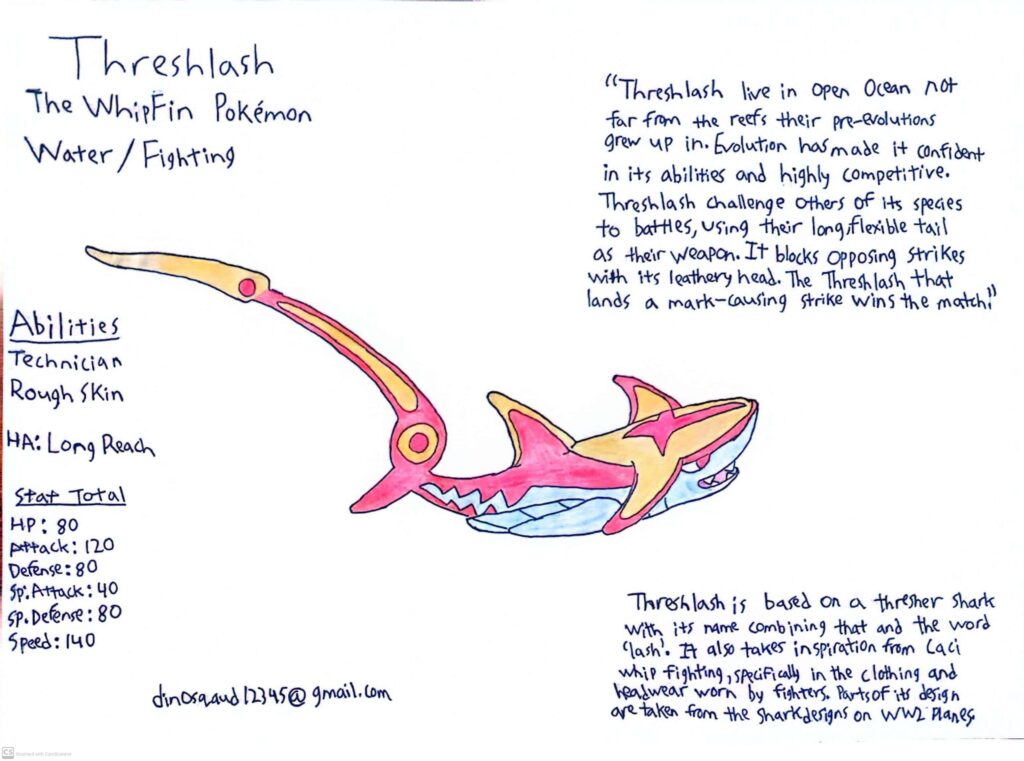 Threshlash
The WhipFin Pokémon
Water/Fighting
"Threshlash live in open Ocean not
far from the reefs their pre-evolutions
grew up in. Evolution has made it confident
in its abilities and highly competitive.
Threshlash challenge others of its species
to battles, using their long, flexible tail
as their weapon. It blocks opposing strikes
with its leathery head. The Threshlash that
lands a mark-causing strike wins the match."
Abilities
Technician
Rough Skin
HA: Long Reach
Stat Total
HP: 80
Attack: 120
Defense: 80
Sp. Attack: 40
Sp. Defense: 80
Speed: 140
dinosqaud12345@gmail.com
Threshlash is based on a thresher shark
with its name combining that and the word
'lash'. It also takes inspiration from Caci
whip fighting, specifically in the clothing and
headwear worn by fighters. Parts of its design
are taken from the shark designs on WW2 Planes.
CS Scanned with CamScanner